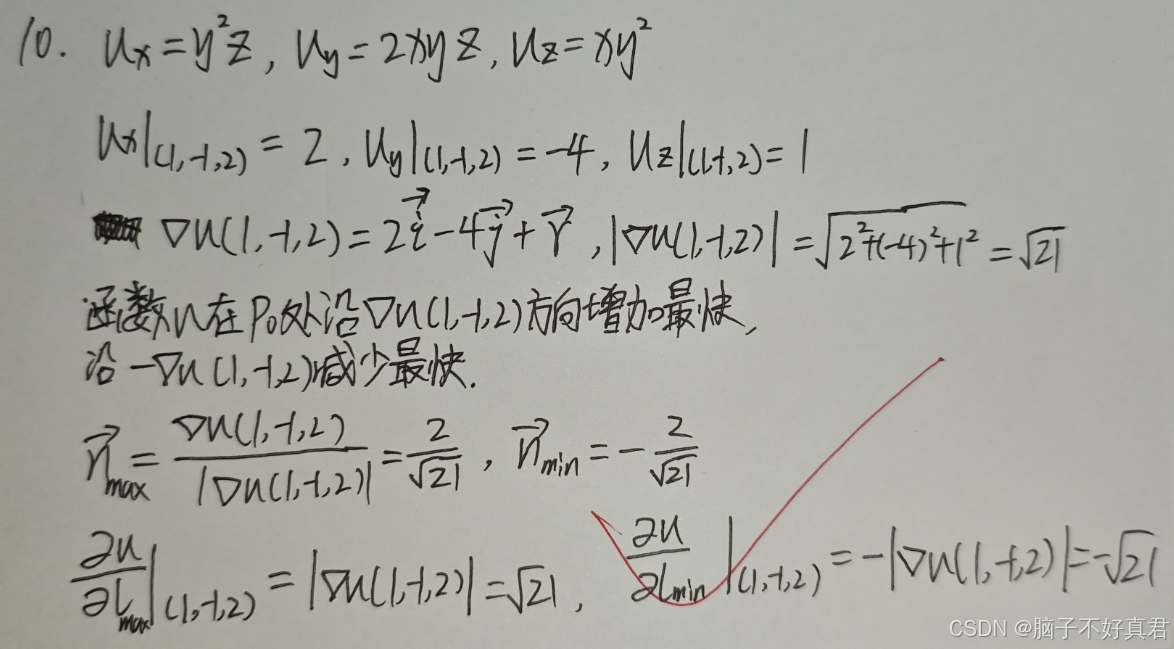 10. Uₓ=y²z, U_y=2xyz, U_z=xy²
Uₓ|(1,-1,2) = 2, U_y|(1,-1,2) = -4, U_z|(1,-1,2) = 1
∇u(1,-1,2) = 2i⃗ - 4j⃗ + r⃗, |∇u(1,-1,2)| = √(2²+(-4)²+1²) = √21
函数u在P₀处沿∇u(1,-1,2)方向增加最快,
沿-∇u(1,-1,2)减少最快.
n⃗_max = ∇u(1,-1,2)/|∇u(1,-1,2)| = 2/√21, n⃗_min = -2/√21
∂u/∂l_max|(1,-1,2) = |∇u(1,-1,2)| = √21, ∂u/∂l_min|(1,-1,2) = -|∇u(1,-1,2)| = -√21
CSDN @脑子不好真君